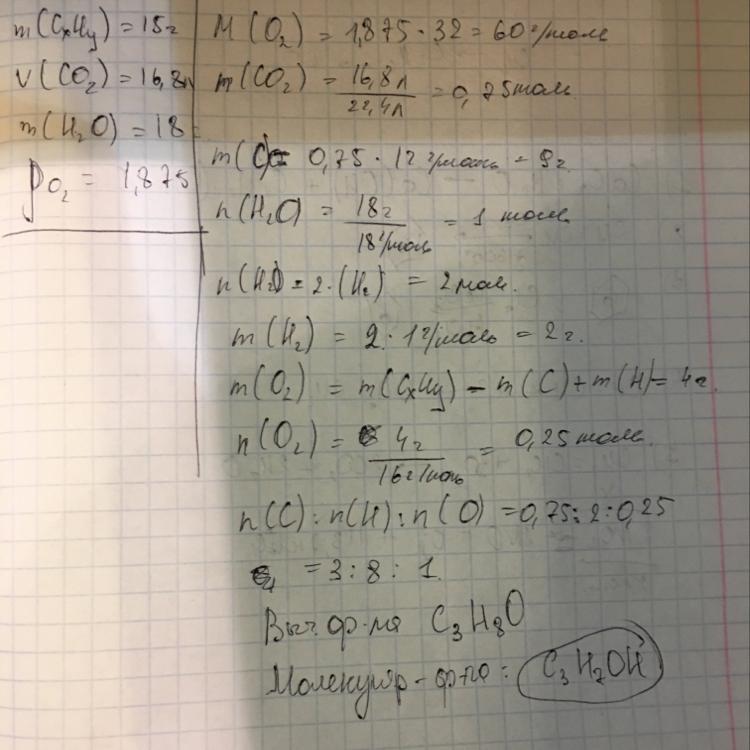 m(CxHy) = 15г
V(CO2) = 16,8л
m(H2O) = 18г
ρO2 = 1,875
M(O2) = 1,875 · 32 = 60 г/моль
m(CO2) = 16,8л / 22,4л = 0,75 моль
m(C) = 0,75 · 12 г/моль = 9г
n(H2O) = 18г / 18г/моль = 1 моль
n(H2) = 2·(H2) = 2 мол.
m(H2) = 2 · 1г/моль = 2г.
m(O2) = m(CxHy) - m(C) + m(H) = 4г.
n(O2) = 4г / 16г/моль = 0,25 моль.
n(C) : n(H) : n(O) = 0,75 : 2 : 0,25
= 3 : 8 : 1.
Выч. ф-ла C3H8O
Молекуляр - ф-ла : C3H7OH